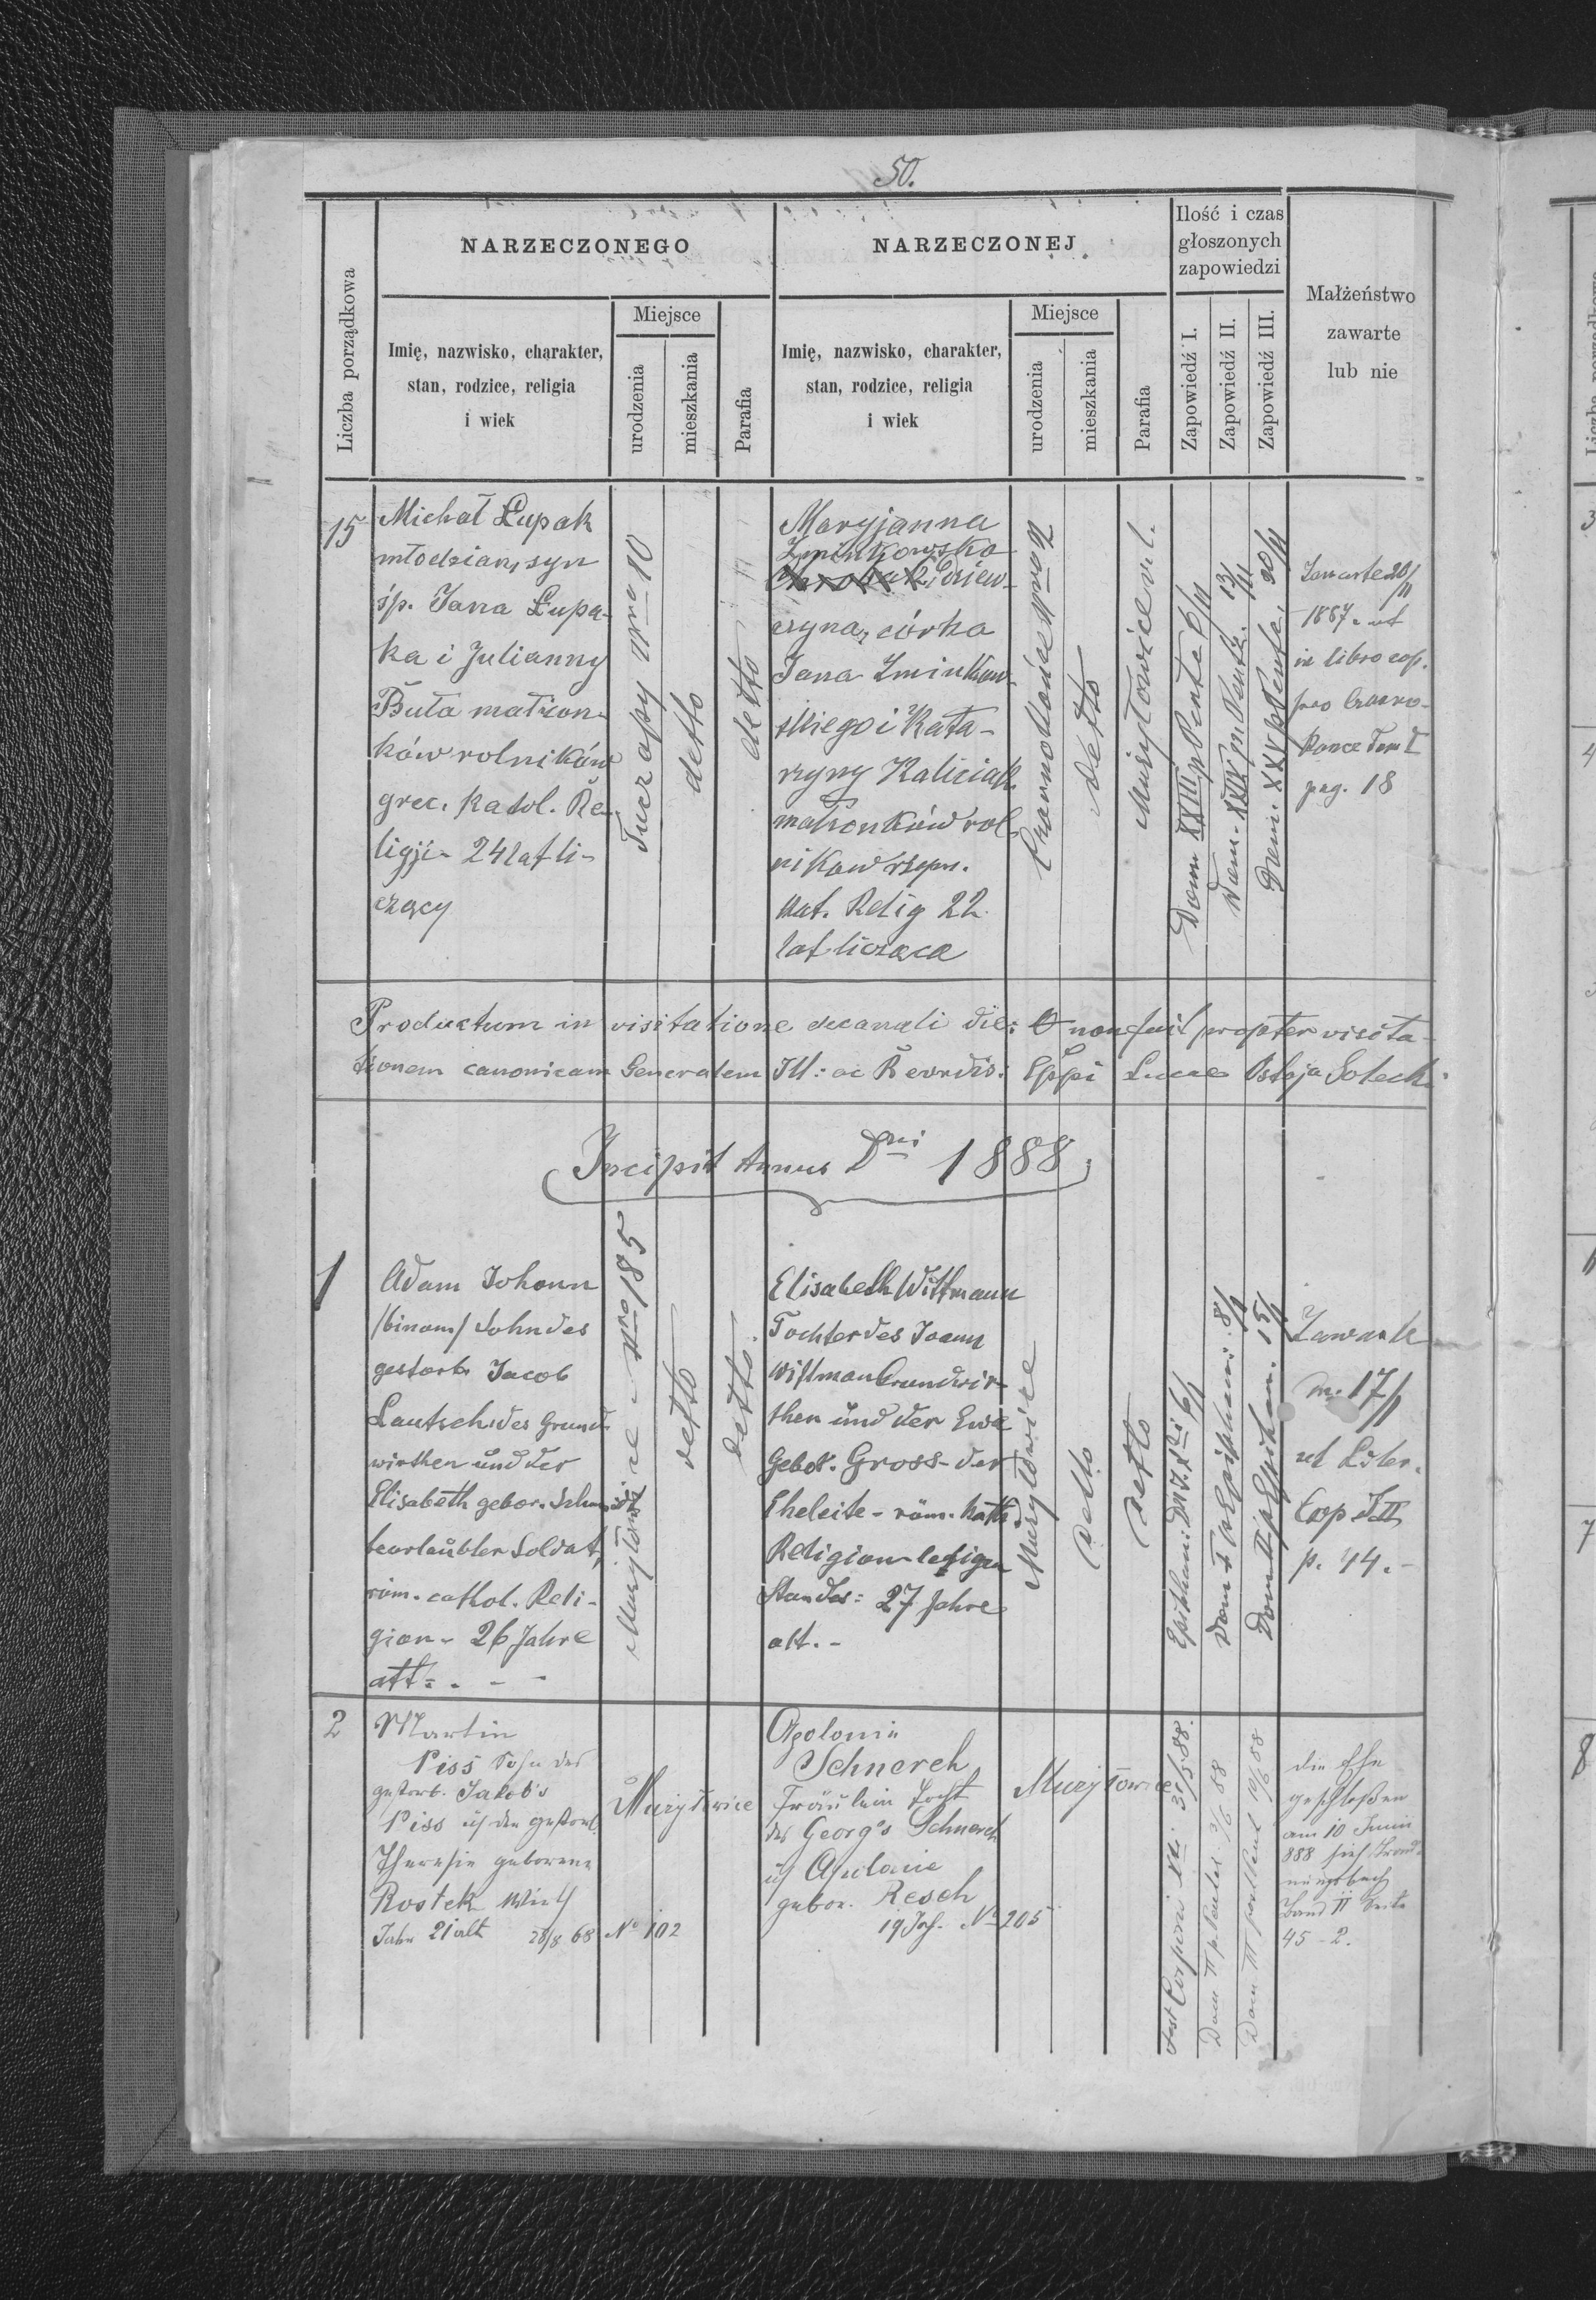 50.
Liczba porządkowa
NARZECZONEGO
Imię, nazwisko, charakter,
stan, rodzice, religia
i wiek
Miejsce
urodzenia
mieszkania
Parafia
NARZECZONEJ
Imię, nazwisko, charakter,
stan, rodzice, religia
i wiek
Miejsce
urodzenia
mieszkania
Parafia
Ilość i czas
głoszonych
zapowiedzi
Zapowiedź I.
Zapowiedź II.
Zapowiedź III.
Małżeństwo
zawarte
lub nie
15
Michał Łupak
młodzian, syn
śp. Jana Łupa-
ka i Julianny
Buta małżon-
ków rolników
grec. katol. Re-
ligji - 24 lat li-
czący
Nro 10
detto
detto
Maryjanna
Żminkowska
Dziew-
czyna, córka
Jana Żminkow-
skiego i Kata-
rzyny Kaliciak
małżonków rol-
ników rzym.
kat. Relig 22
lat licząca
Nro 2
detto
Mużyłowice
Dom XXIII p Pent 6/11
Dom. XXIV p Pent. 13/11
Dom. XXV p Pente. 20/11
Zawarte 20/11
1887 ut
in libro cop.
pro
Tom I
pag. 18
Productum in visitatione decanali die: non fuit propter visita-
tionem canonicam Generalem Ill: ac Revrdis: Eppi Lucae Ostoja Solecki
Incipit Annus Dni 1888
1
Adam Johann
/binom/ Sohn des
gestorb. Jacob
Lautsch des Grund
wirthen und der
Elisabeth gebor. Schmidt
beurlaubter Soldat,
röm. cathol. Reli-
gion - 26 Jahre
alt
Mużyłowice - Nro 185
detto
detto
Elisabeth Wittmann
Tochter des Joann
Wittman Grundwir-
then und der Ewa
Gebor. Gross - der
Eheleite - röm. kath.
Religion ledigen
Standes: 27 Jahre
alt. -
Mużyłowice
detto
detto
Epiphani: DNJ. Xti 6/1
Dom I p Epiphani: 8/1
Dom II p Epiphan. 15/1
Zawarte
17/1
ut Liber.
Cop T II
p. 44. -
2
Martin
Piss Sohn des
gestorb. Jakob's
Piss u. der gestorb.
Theresie geborene
Rostek
Jahr 21 alt 28/8 68
Mużyłowice
No 102
Apolonia
Schnerch
Fräulein Tocht
des Georg's Schnerch
u. Apolonie
gebor. Resch
19 Jah. No 205
Mużyłowice
Fest Corporis Xti 31/5 88.
Dom II p Pentec. 3/6 88
Dom III post Pent 10/6 88
die Ehe
geschloßen
am 10 Juni
888 sieh Trau-
nungsbuch
Band II Seite
45 - 2.